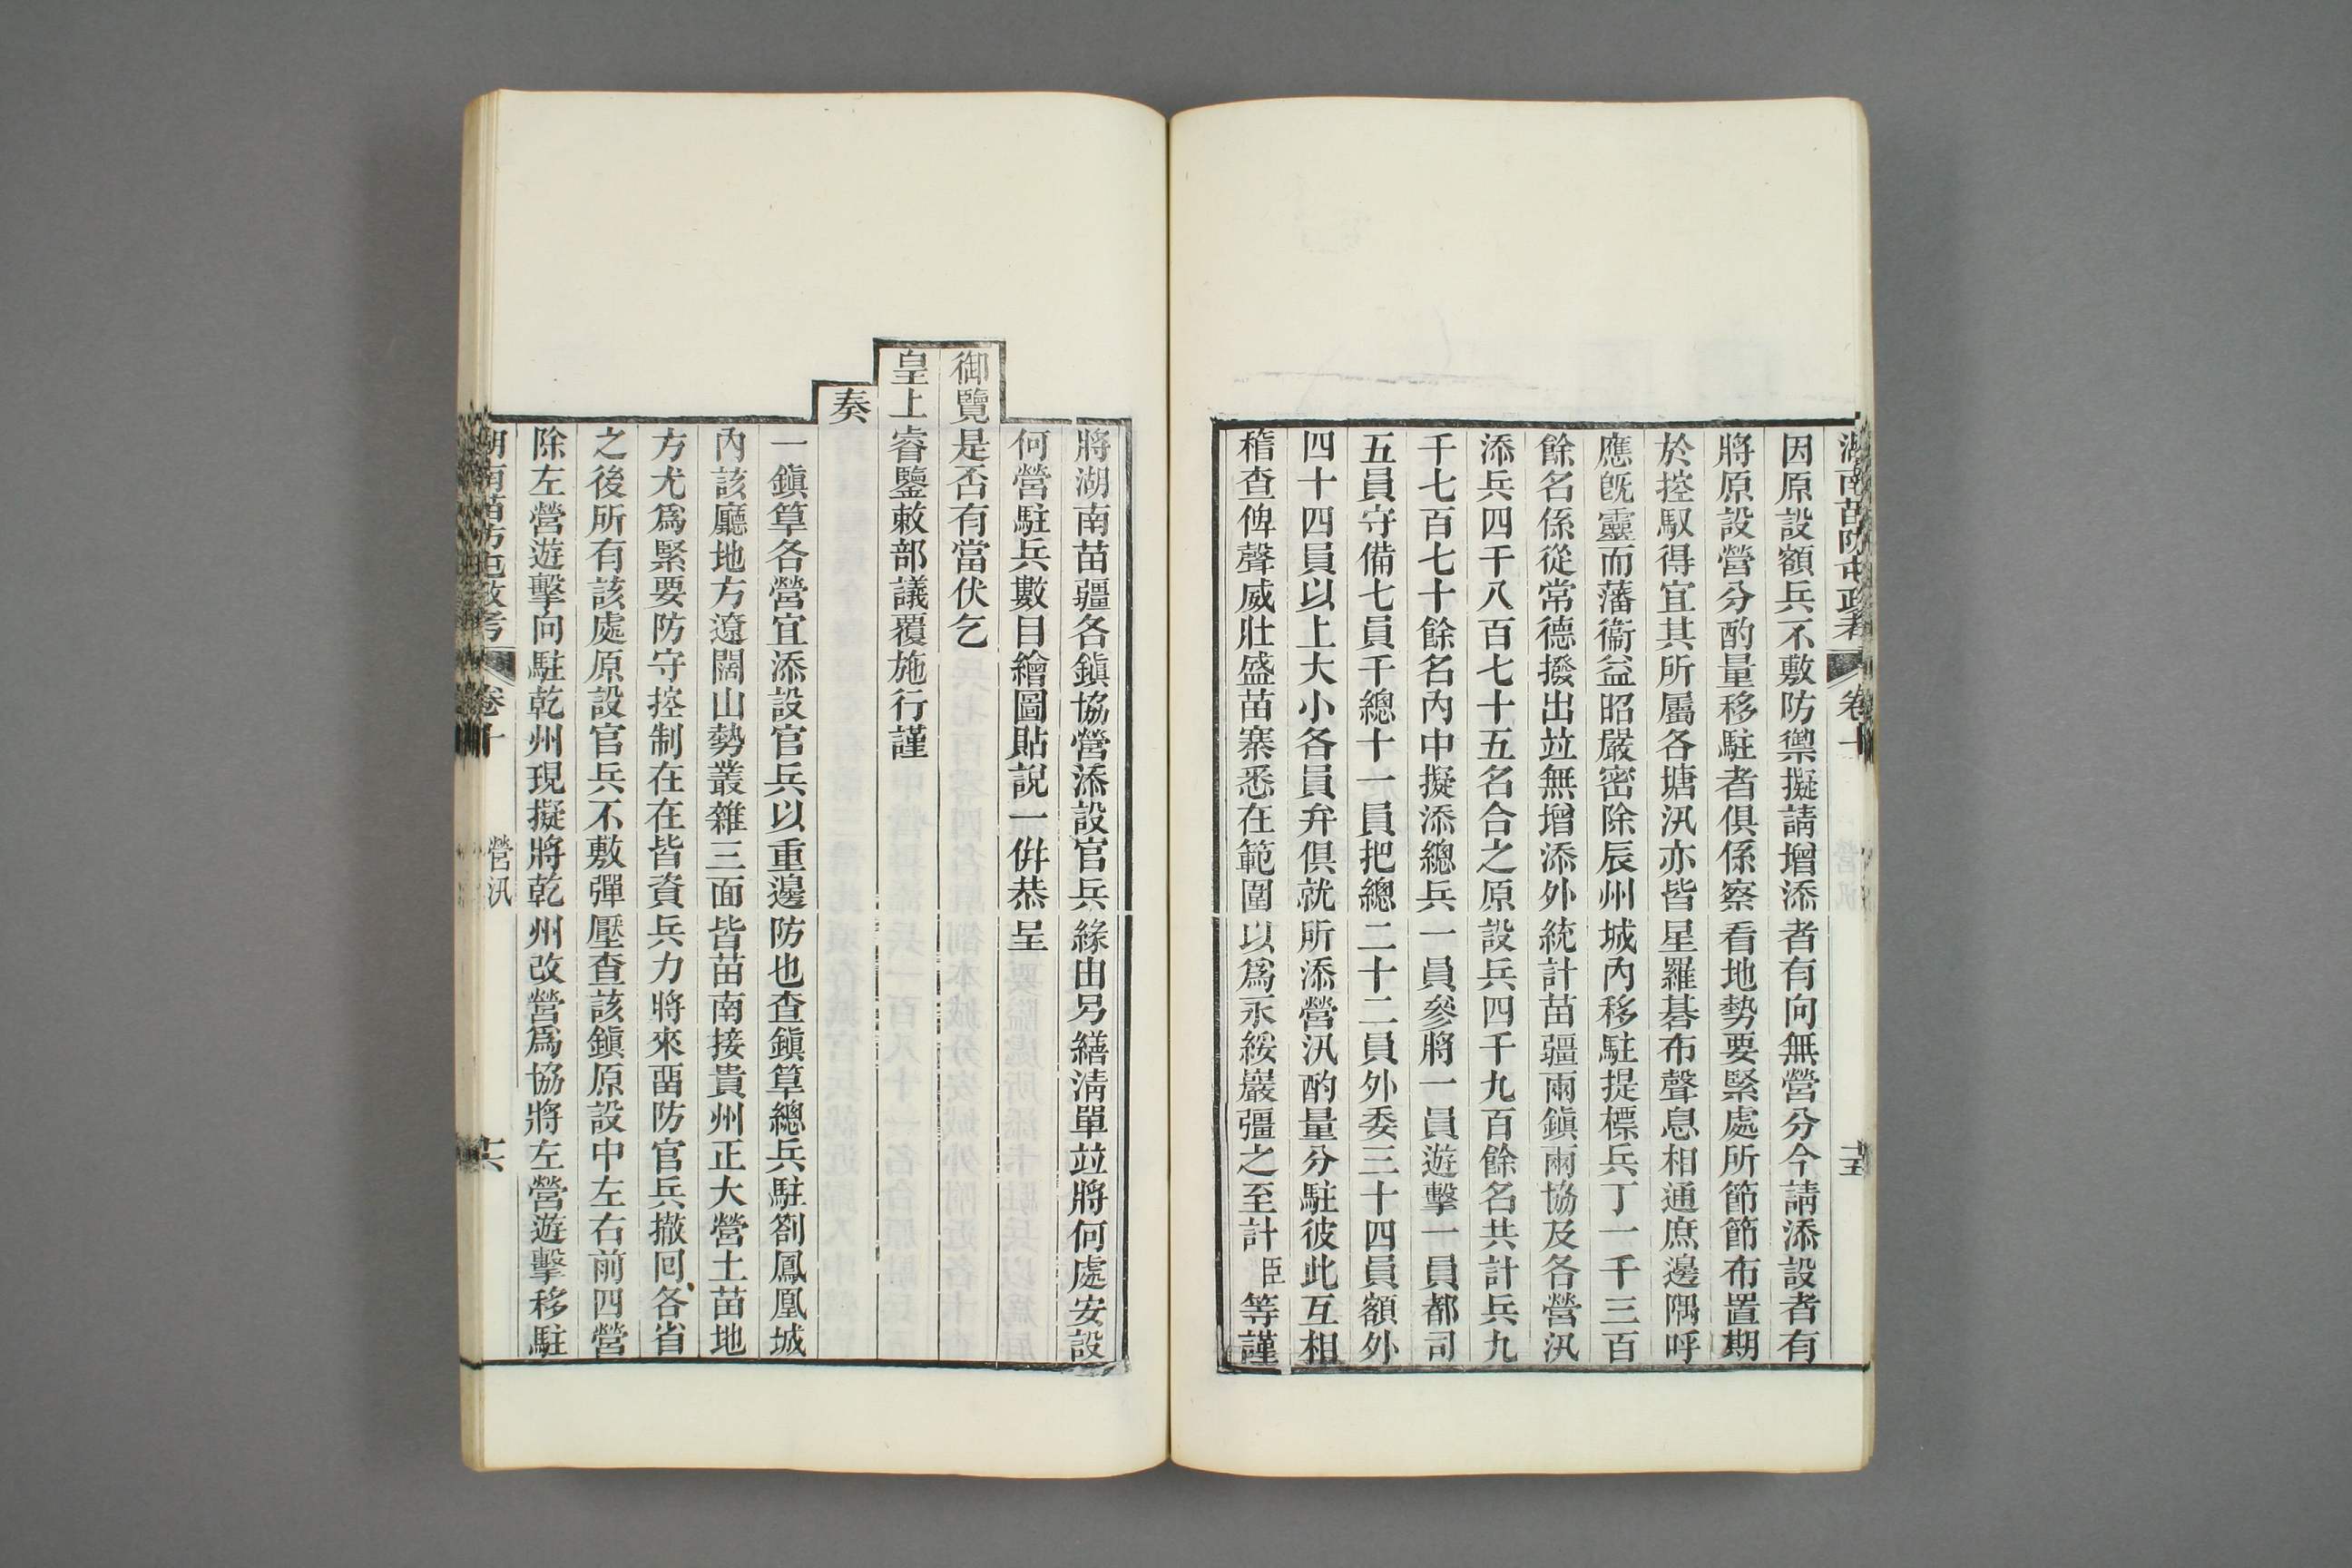 湖南苗防屯政考 卷十 營汛 十五
因原設額兵不敷防禦擬請增添者有向無營分今請添設者有
將原設營分酌量移駐者俱係察看地勢要緊處所節節布置期
於控馭得宜其所屬各塘汛亦皆星羅碁布聲息相通庶邊隅呼
應旣靈而藩衞益昭嚴密除辰州城內移駐提標兵丁一千三百
餘名係從常德撥出竝無增添外統計苗疆兩鎭兩協及各營汛
添兵四千八百七十五名合之原設兵四千九百餘名共計兵九
千七百七十餘名內中擬添總兵一員參將一員遊擊一員都司
五員守備七員千總十一員把總二十二員外委三十四員額外
四十四員以上大小各員弁俱就所添營汛酌量分駐彼此互相
稽查俾聲威壯盛苗寨悉在範圍以爲永綏巖疆之至計臣等謹
將湖南苗疆各鎭協營添設官兵緣由另繕淸單竝將何處安設
何營駐兵數目繪圖貼說一倂恭呈
御覽是否有當伏乞
皇上睿鑒敕部議覆施行謹
奏
一鎭筸各營宜添設官兵以重邊防也查鎭筸總兵駐劄鳳凰城
內該廳地方遼闊山勢叢雜三面皆苗南接貴州正大營土苗地
方尤爲緊要防守控制在在皆資兵力將來畱防官兵撤回各省
之後所有該處原設官兵不敷彈壓查該鎭原設中左右前四營
除左營遊擊向駐乾州現擬將乾州改營爲協將左營遊擊移駐
湖南苗防屯政考 卷十 營汛 十六